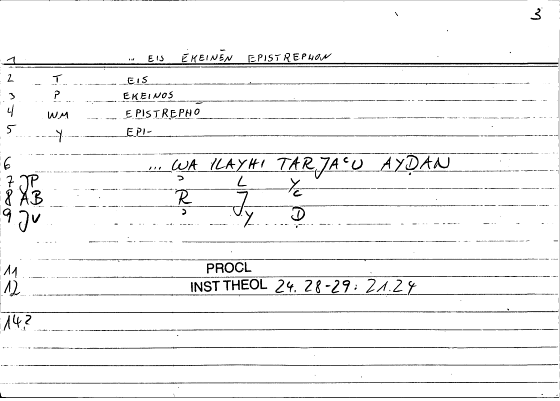 3
1 .. EIS EKEINĒN EPISTREPHON
2 T EIS
3 P EKEINOS
4 WM EPISTREPHŌ
5 Y EPI-
6 ... WA ILAYHI TARJAʿU AYḌAN
7 JP ʾ L Y
8 AB R J ʿ
9 JV ʾ Y Ḍ
11 PROCL
12 INST THEOL 24. 28-29: 21.24
14.2